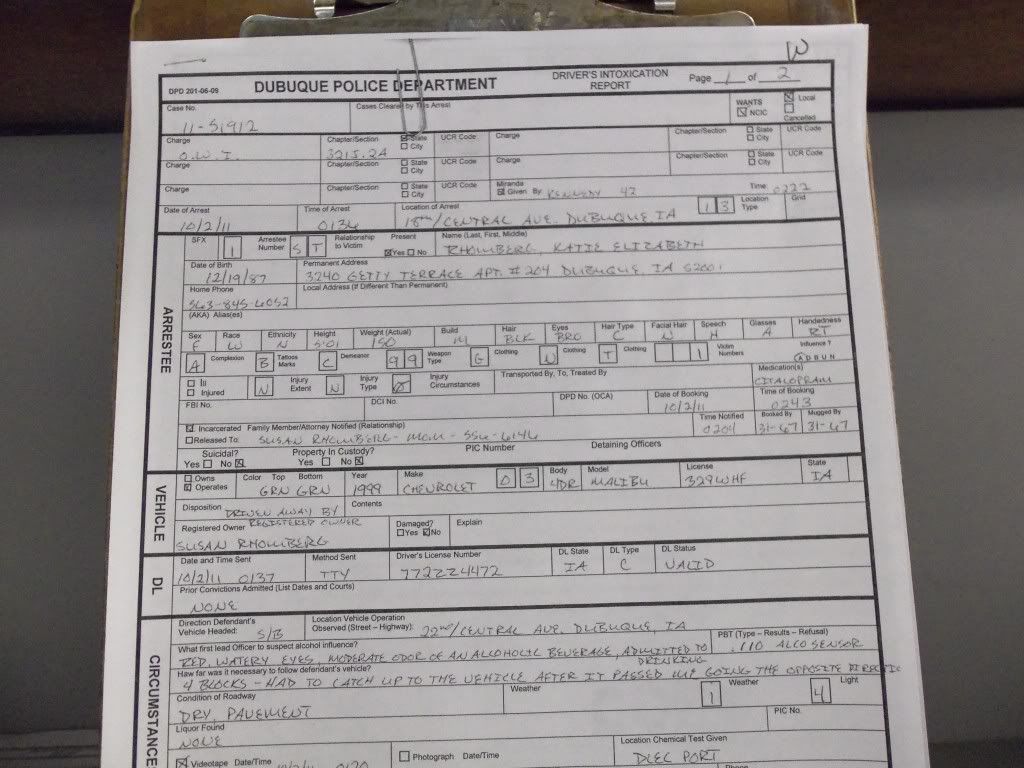 W
DPD 201-06-09 DUBUQUE POLICE DEPARTMENT DRIVER'S INTOXICATION REPORT Page 1 of 2
Case No. Cases Cleared by This Arrest WANTS NCIC Local Cancelled
11-51912
Charge Chapter/Section State City UCR Code Charge Chapter/Section State City UCR Code
O.W.I. 321J.2A
Charge Chapter/Section State City UCR Code Charge Chapter/Section State City UCR Code
Charge Chapter/Section State City UCR Code Miranda Given By KENNEDY 42 Time 0222
Date of Arrest Time of Arrest Location of Arrest 13 Location Type Grid
10/2/11 0136 18TH/CENTRAL AVE. DUBUQUE IA
ARRESTEE
SFX 1 Arrestee Number ST Relationship to Victim Present Yes No Name (Last, First, Middle)
RHOMBERG, KATIE ELIZABETH
Date of Birth Permanent Address
12/19/87 3240 GETTY TERRACE APT. #204 DUBUQUE, IA 52001
Home Phone Local Address (If Different Than Permanent)
563-845-6052
(AKA) Alias(es)
Sex Race Ethnicity Height Weight (Actual) Build Hair Eyes Hair Type Facial Hair Speech Glasses Handedness
F W N 5'01 150 M BLK BRO C N N A RT
A Complexion B Tattoos Marks C Demeanor 99 Weapon Type G Clothing N Clothing T Clothing 1 Victim Numbers Influence ? A D B U N
Ill Injured N Injury Extent N Injury Type 0 Injury Circumstances Transported By, To, Treated By Medication(s)
CITALOPRAM
FBI No. DCI No. DPD No. (OCA) Date of Booking Time of Booking
10/2/11 0243
Incarcerated Family Member/Attorney Notified (Relationship) Time Notified Booked By Mugged By
Released To: SUSAN RHOMBERG - MOM - 556-6146 0201 31-67 31-67
Suicidal? Property In Custody? PIC Number Detaining Officers
Yes No Yes No
VEHICLE
Owns Operates Color Top Bottom Year Make 03 Body Model License State
GRN GRN 1999 CHEVROLET 4DR MALIBU 329WHF IA
Disposition DRIVEN AWAY BY REGISTERED OWNER Contents
Registered Owner Damaged? Yes No Explain
SUSAN RHOMBERG
DL
Date and Time Sent Method Sent Driver's License Number DL State DL Type DL Status
10/2/11 0137 TTY 772ZZ4472 IA C VALID
Prior Convictions Admitted (List Dates and Courts)
NONE
CIRCUMSTANCE
Direction Defendant's Vehicle Headed: S/B Location Vehicle Operation Observed (Street – Highway): 22ND/CENTRAL AVE. DUBUQUE, IA
What first lead Officer to suspect alcohol influence? PBT (Type – Results – Refusal)
RED, WATERY EYES, MODERATE ODOR OF AN ALCOHOLIC BEVERAGE, ADMITTED TO DRINKING .110 ALCO SENSOR
How far was it necessary to follow defendant's vehicle?
4 BLOCKS - HAD TO CATCH UP TO THE VEHICLE AFTER IT PASSED ME GOING THE OPPOSITE DIRECTIO
Condition of Roadway Weather 1 Weather 4 Light
DRY, PAVEMENT
Liquor Found PIC No.
NONE
Videotape Date/Time Photograph Date/Time Location Chemical Test Given
DLEC PORT
Phone